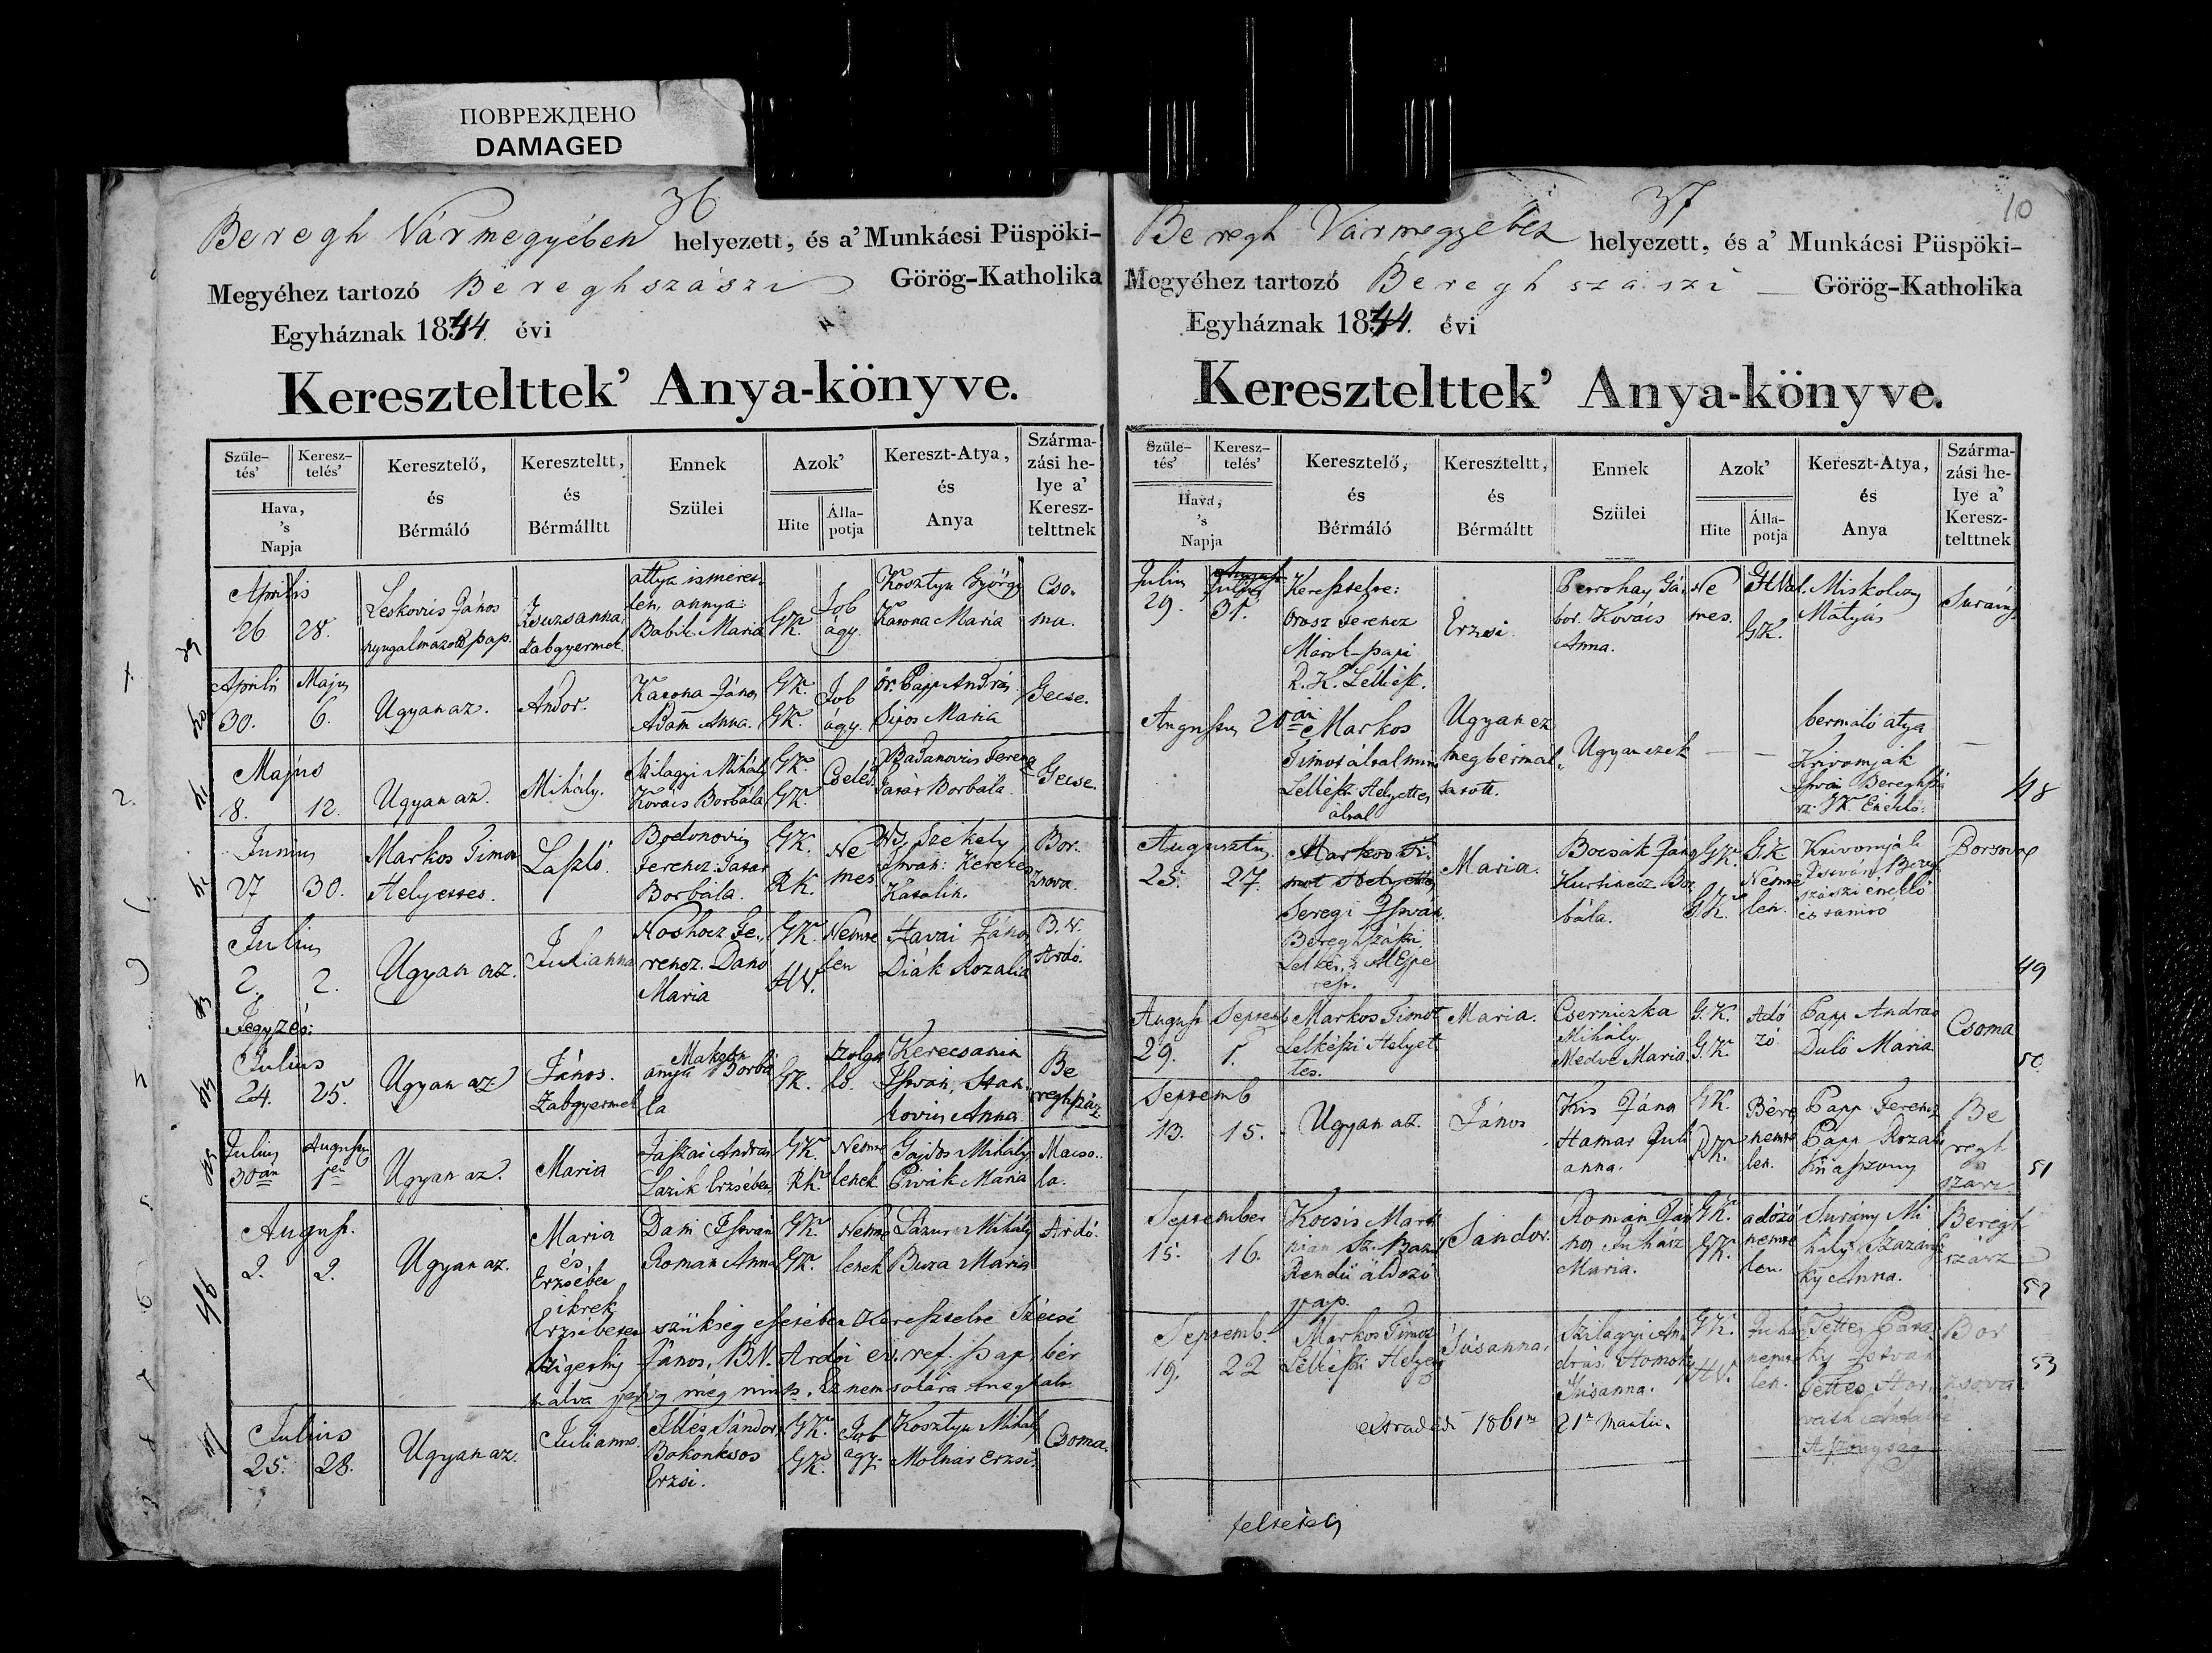 ПОВРЕЖДЕНО
DAMAGED
36
Beregh Vármegyében helyezett, és a' Munkácsi Püspöki-
Megyéhez tartozó Bereghszászi Görög-Katholika
Egyháznak 1844. évi
Keresztelttek' Anya-könyve.
Szüle-
tés'
Keresz-
telés'
Hava,
's
Napja
Keresztelő,
és
Bérmáló
Kereszteltt,
és
Bérmálltt
Ennek
Szülei
Azok'
Hite
Álla-
potja
Kereszt-Atya,
és
Anya
Szárma-
zási he-
lye a'
Keresz-
telttnek
39
Aprilis
26 28.
Leskovics János
nyugalmazott pap.
Zsuzsanna
Zabgyermek
attya ismeret-
len, annya:
Babil. Maria
GK.
Job
ágy.
Kosztyu György
Karona Maria
Cso-
ma.
40
Aprilis Majus
30. 6.
Ugyan az.
Andor.
Karona János
Ádám Anna.
GK.
GK.
Job
ágy.
ör. Papp András
Sipos Maria
Gecse.
41
Május
8. 12.
Ugyan az.
Mihály.
Szilagyi Mihály
Kovács Borbála
GK.
GK.
Cseléd
Badanovics Ferencz
Vasár Borbála.
Gecse.
42
Junius
27 30.
Markos Timot
Helyettes.
László
Bodonovics
Ferencz. Tatar
Borbála.
GK.
RK.
Ne
mes
Székely
István: Kerekes
Katalin.
Bor-
zsova.
43
Julius
2. 2.
Ugyan az.
Julianna
Noshocz Fe-
rencz. Dano
Maria
GK.
HV.
Nemte
len
Havai János
Diák Rozalia
B. V.
Ardó.
Jegyzés:
44
Julius
24. 25.
Ugyan az.
János.
Zabgyermek
anyja Borbá
la
GK.
szolgá
ló.
Kerecsanin
István, Stan-
kovics Anna.
Be
reghszász
45
Julius Augustus
30án 1én
Ugyan az.
Maria
Jaszai András
Lazik Erzsébet
GK.
RK.
Nemte
lenek
Gajdos Mihály
Pivák Maria
Macso-
la.
46
August.
2. 2.
Ugyan az.
Maria
és
Erzsébet
ikrek
Dani István
Roman Anna
GK.
GK.
Nemte
lenek
Lázur Mihály
Buza Maria
Ardó.
Erzsébeten szükség esetében keresztelve Szécsi
János, B.V. Ardói ev. ref. pap, bér
malva még nints. Ez nem sokára meghalt.
47
Julius
25. 28.
Ugyan az.
Julianna.
Illés Sándor
Bakonkisos
Erzsi.
GK.
GK.
Job
ágy.
Kosztyu Mihály
Molnár Erzsi.
Csoma.
37
10
Beregh Vármegyében helyezett, és a' Munkácsi Püspöki-
Megyéhez tartozó Bereghszászi Görög-Katholika
Egyháznak 1844. évi
Keresztelttek' Anya-könyve.
Szüle-
tés'
Keresz-
telés'
Hava,
's
Napja
Keresztelő,
és
Bérmáló
Kereszteltt,
és
Bérmáltt
Ennek
Szülei
Azok'
Hite
Álla-
potja
Kereszt-Atya,
és
Anya
Szárma-
zási he-
lye a'
Keresz-
telttnek
Julius Julius
29. 31.
Keresztelve:
Orosz Ferencz
Marok-papi
R. K. Lelkész.
Erzsi.
Perrohay Gá-
bor. Kovács
Anna.
Ne
mes.
HV.
GK.
Miskolczy
Mátyás
Surány
Augustus 20án
Markos
Timot által mint
Lelkész Helyettes
által
Ugyan ez
megbérmál-
tatott.
Ugyan ezek
bermáló atya
Krivonyják
István Bereghszá
szi Éneklő.
48
Augustus
25. 27.
Markos Ti-
mot Helyettes
Seregi István
Bereghszászi
Lelkész
Maria.
Bocsák János
Kurtinecz Bor
bála.
GK.
GK.
GK
Nemte
len.
Krivonyják
István Bereg
szászi éneklő
és tanitó
Borsova
49
August Septemb
29. 1.
Markos Timot
Lelkészi Helyet
tes.
Maria.
Cserniczka
Mihály.
Medve Maria.
G.K.
G.K.
Adó
zó
Papp András
Duló Maria
Csoma
50.
Septemb
13. 15.
Ugyan az.
János
Kis János
Hamar Juli
anna.
GK.
RK.
Béres
nemte
len.
Papp Ferencz
Papp Rozalia
Kis aszony
Be
regh
szász
51
September
15. 16.
Kocsis Marti
nian Sz. Bazil
Rendü áldozó
pap.
Sándor.
Román Já
nos Juhász
Maria.
GK.
GK.
adózó
nemte
len.
Surány Mi
hály Szazans
ky Anna.
Beregh
szász
52
Septemb.
19. 22
Markos Timot
Lelkészi Helyet
Súsanna.
Szilagyi An-
drás. Homok
Súsanna.
GK.
HV.
nemte
len.
Tettes Para
ky István
Tettes Hor-
váth Amália
Aszonyság
Bor
zsova.
53
extradedi 1861ma 21a Martii.
1
2.